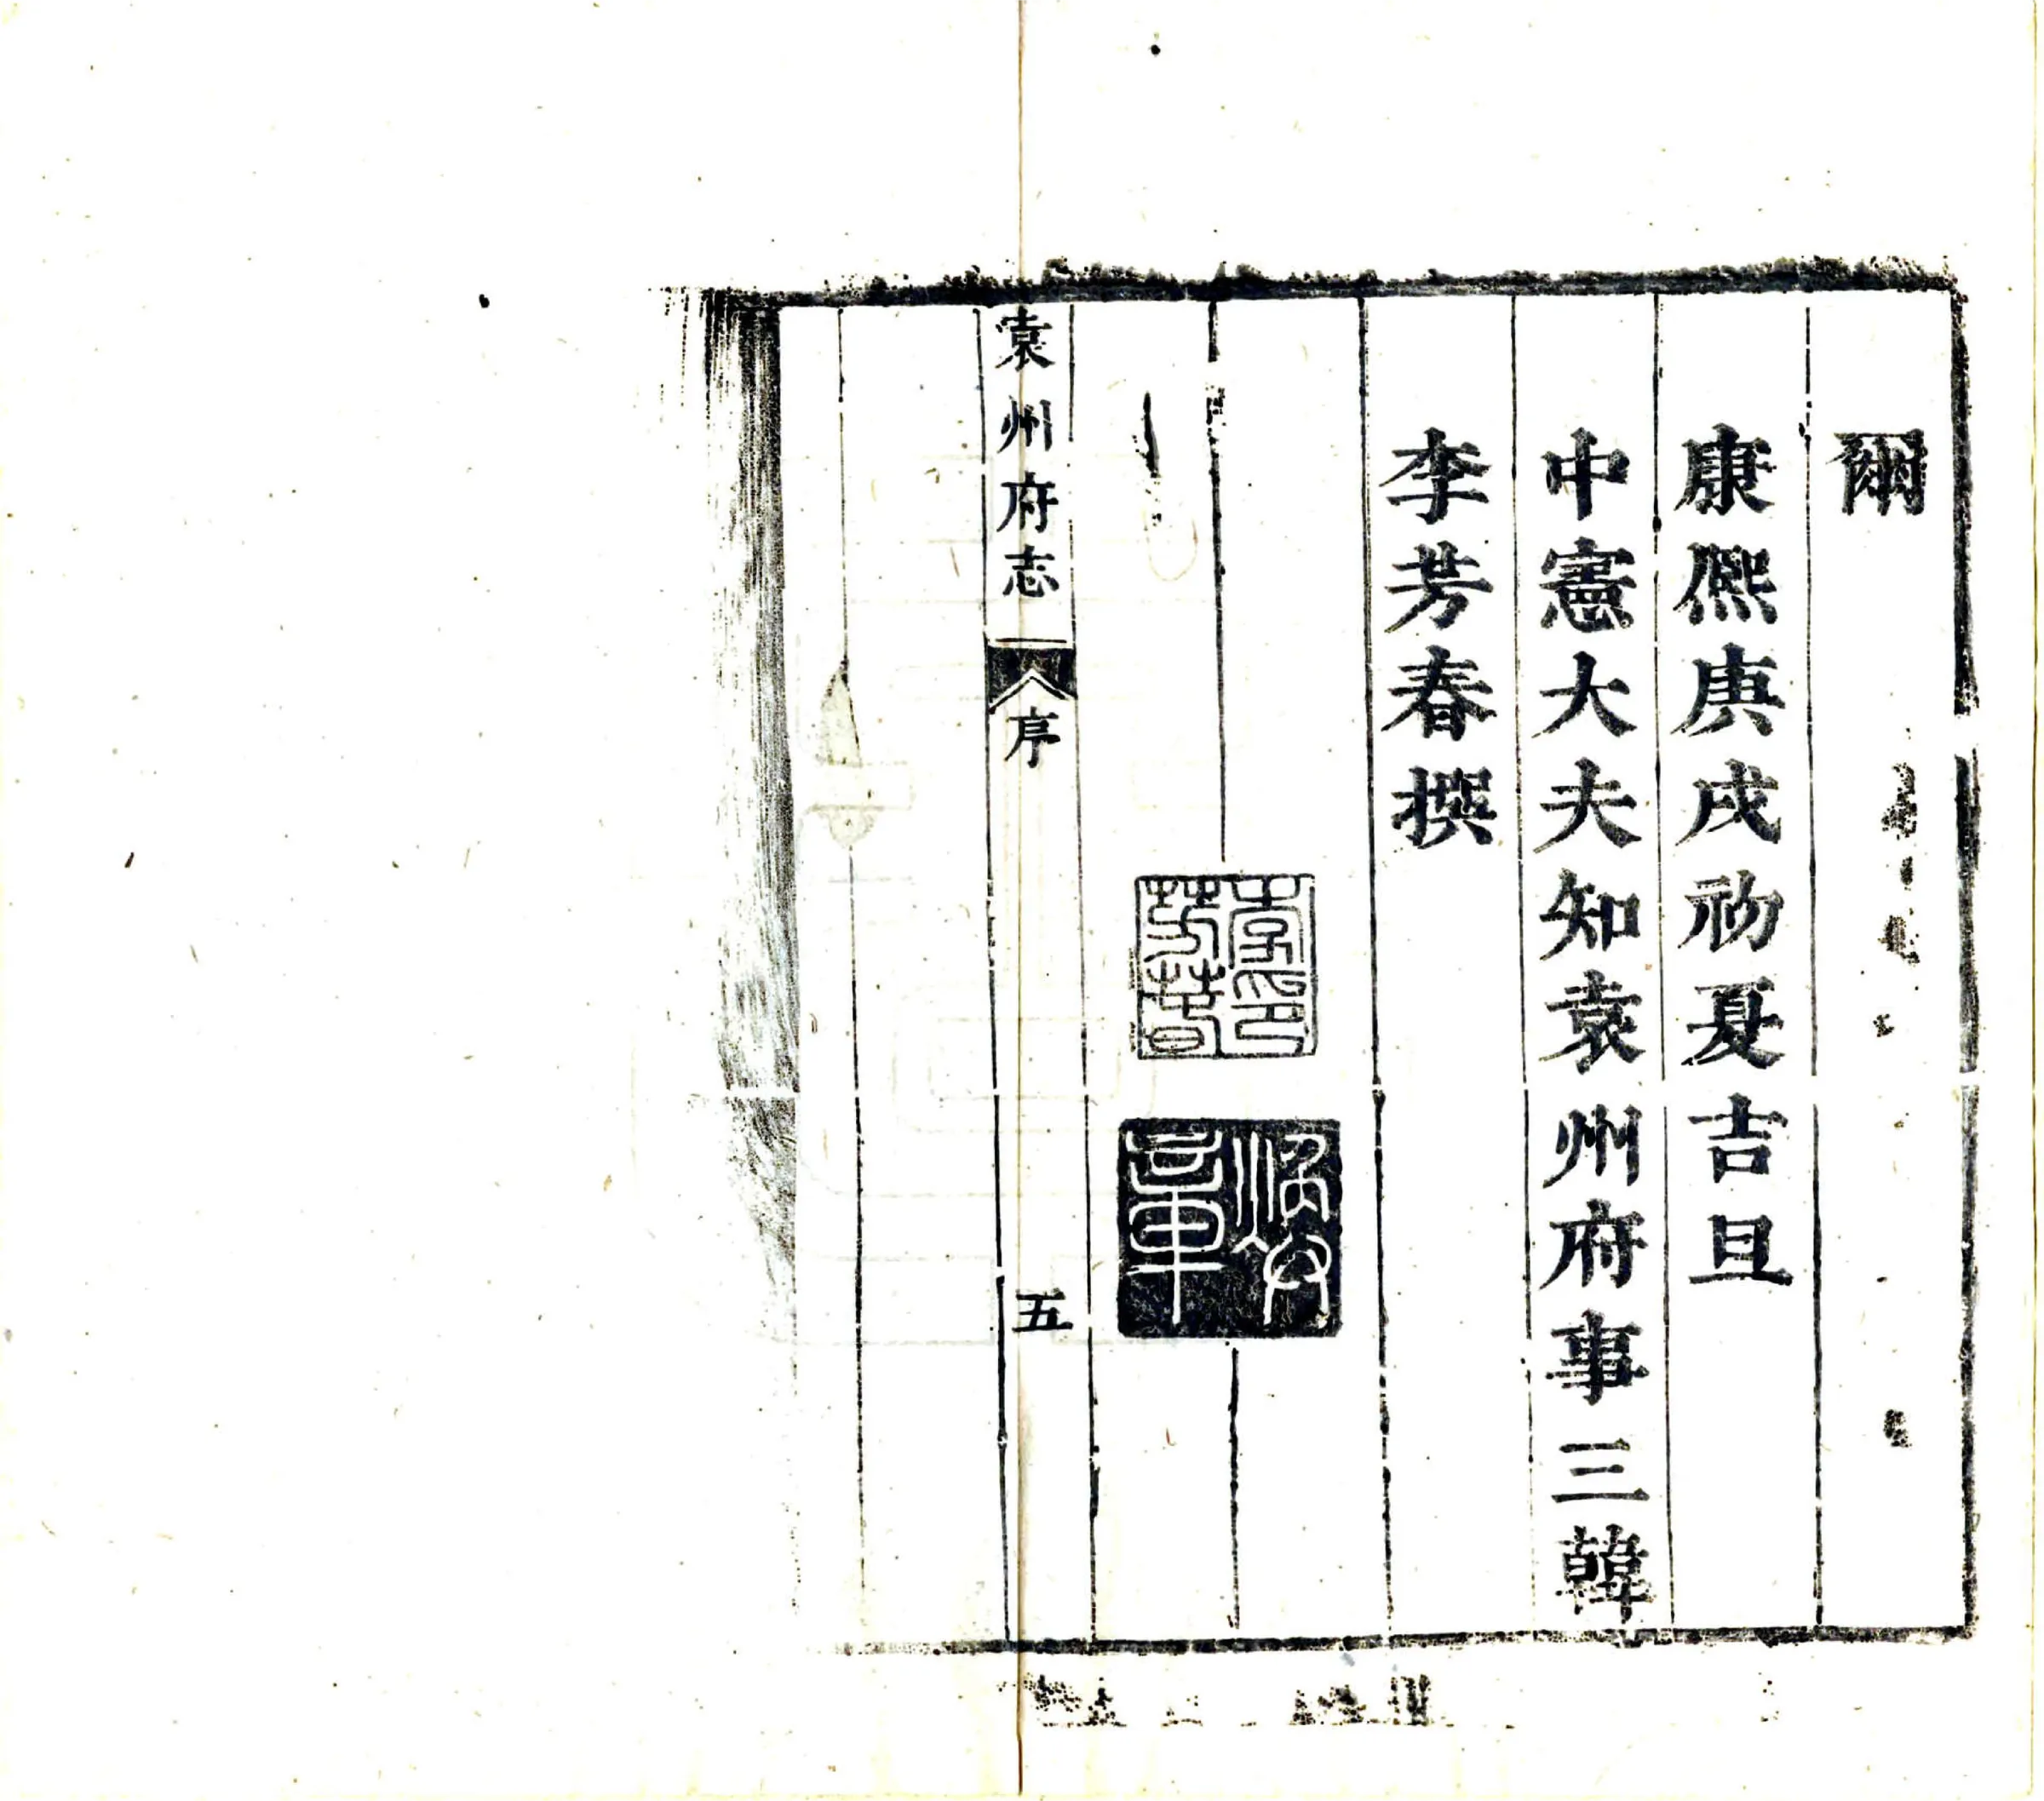 爾
康熙庚戌初夏吉旦
中憲大夫知袁州府事三韓
李芳春撰
李印芳春
袁州府志
序
五